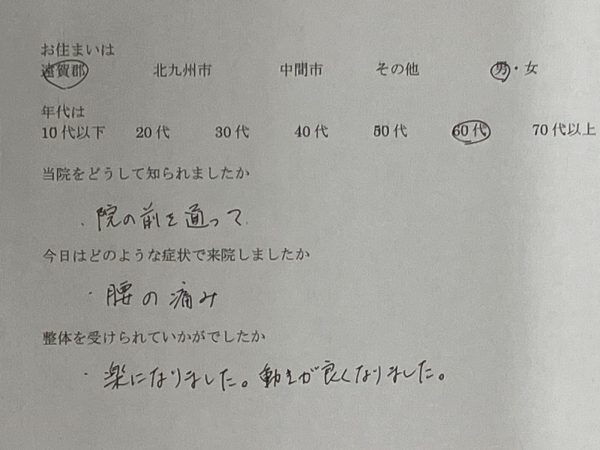 お住まいは
遠賀郡 北九州市 中間市 その他 男・女
年代は
10代以下 20代 30代 40代 50代 60代 70代以上
当院をどうして知られましたか
・院の前を通って
今日はどのような症状で来院しましたか
・腰の痛み
整体を受けられていかがでしたか
・楽になりました。動きが良くなりました。